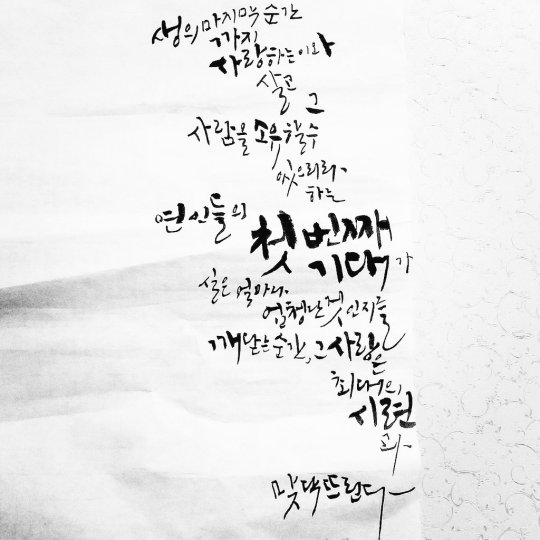 생의 마지막 순간
까지
사랑하는 이와
살고
그
사람을 소유할 수
있으리라
하는
연인들의
첫 번째
기대가
실은 얼마나
엄청난 것인지를
깨닫는 순간, 그 사람은
최대의
시련
과
맞닥뜨린다